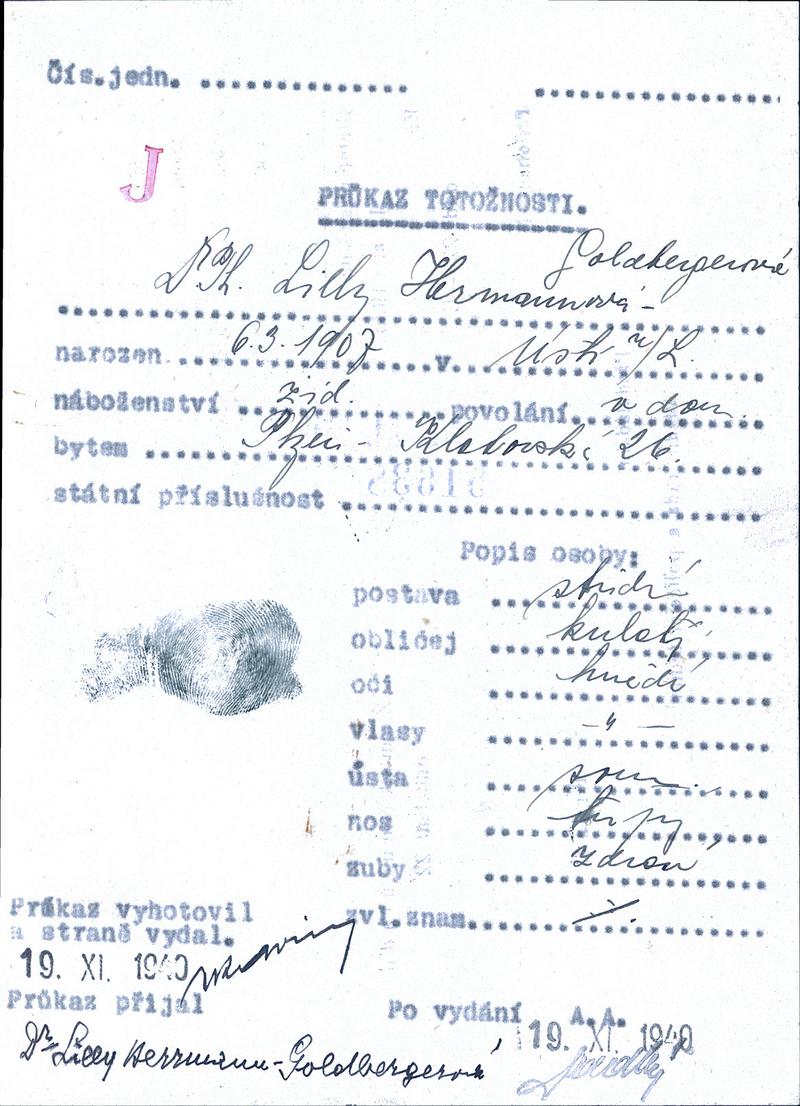 Čís.jedn. ..................... .........................
J
PRŮKAZ TOTOŽNOSTI.
Goldbergerová
Lilly Hermannová-
narozen 6.3.1907 v Ústí n/L.
náboženství žid. povolání v dom.
bytem Plzeň - Klatovská 26.
státní příslušnost
Popis osoby:
postava střední
obličej kulatý
oči hnědé
vlasy -"-
ústa soum.
nos tupý
zuby zdravé
Průkaz vyhotovil zvl.znam.
a straně vydal.
19. XI. 1940
Průkaz přijal Po vydání A.A.
19. XI. 1940
Dr. Lilly Herrmann-Goldbergerová